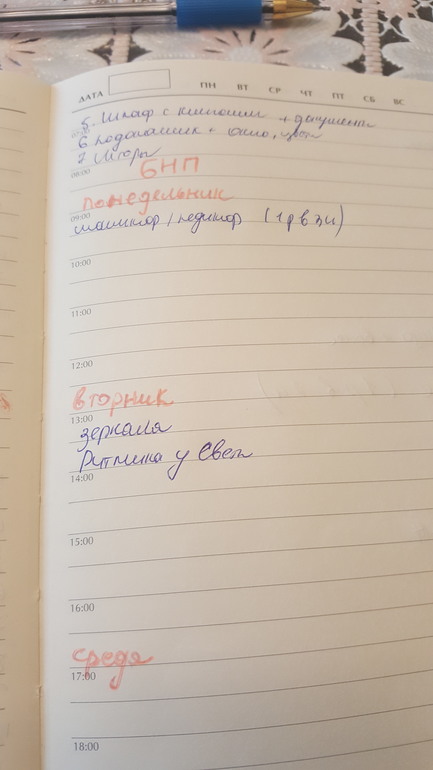 ДАТА ПН ВТ СР ЧТ ПТ СБ ВС
5. Шкаф с книгами + документы
07:00
6 Подоконник + окно, цветы
7 Шторы
08:00
БНП
понедельник
09:00
маникюр / педикюр (1 р в 3 н)
10:00
11:00
12:00
вторник
13:00
зеркала
Рутина у Светы
14:00
15:00
16:00
среда
17:00
18:00